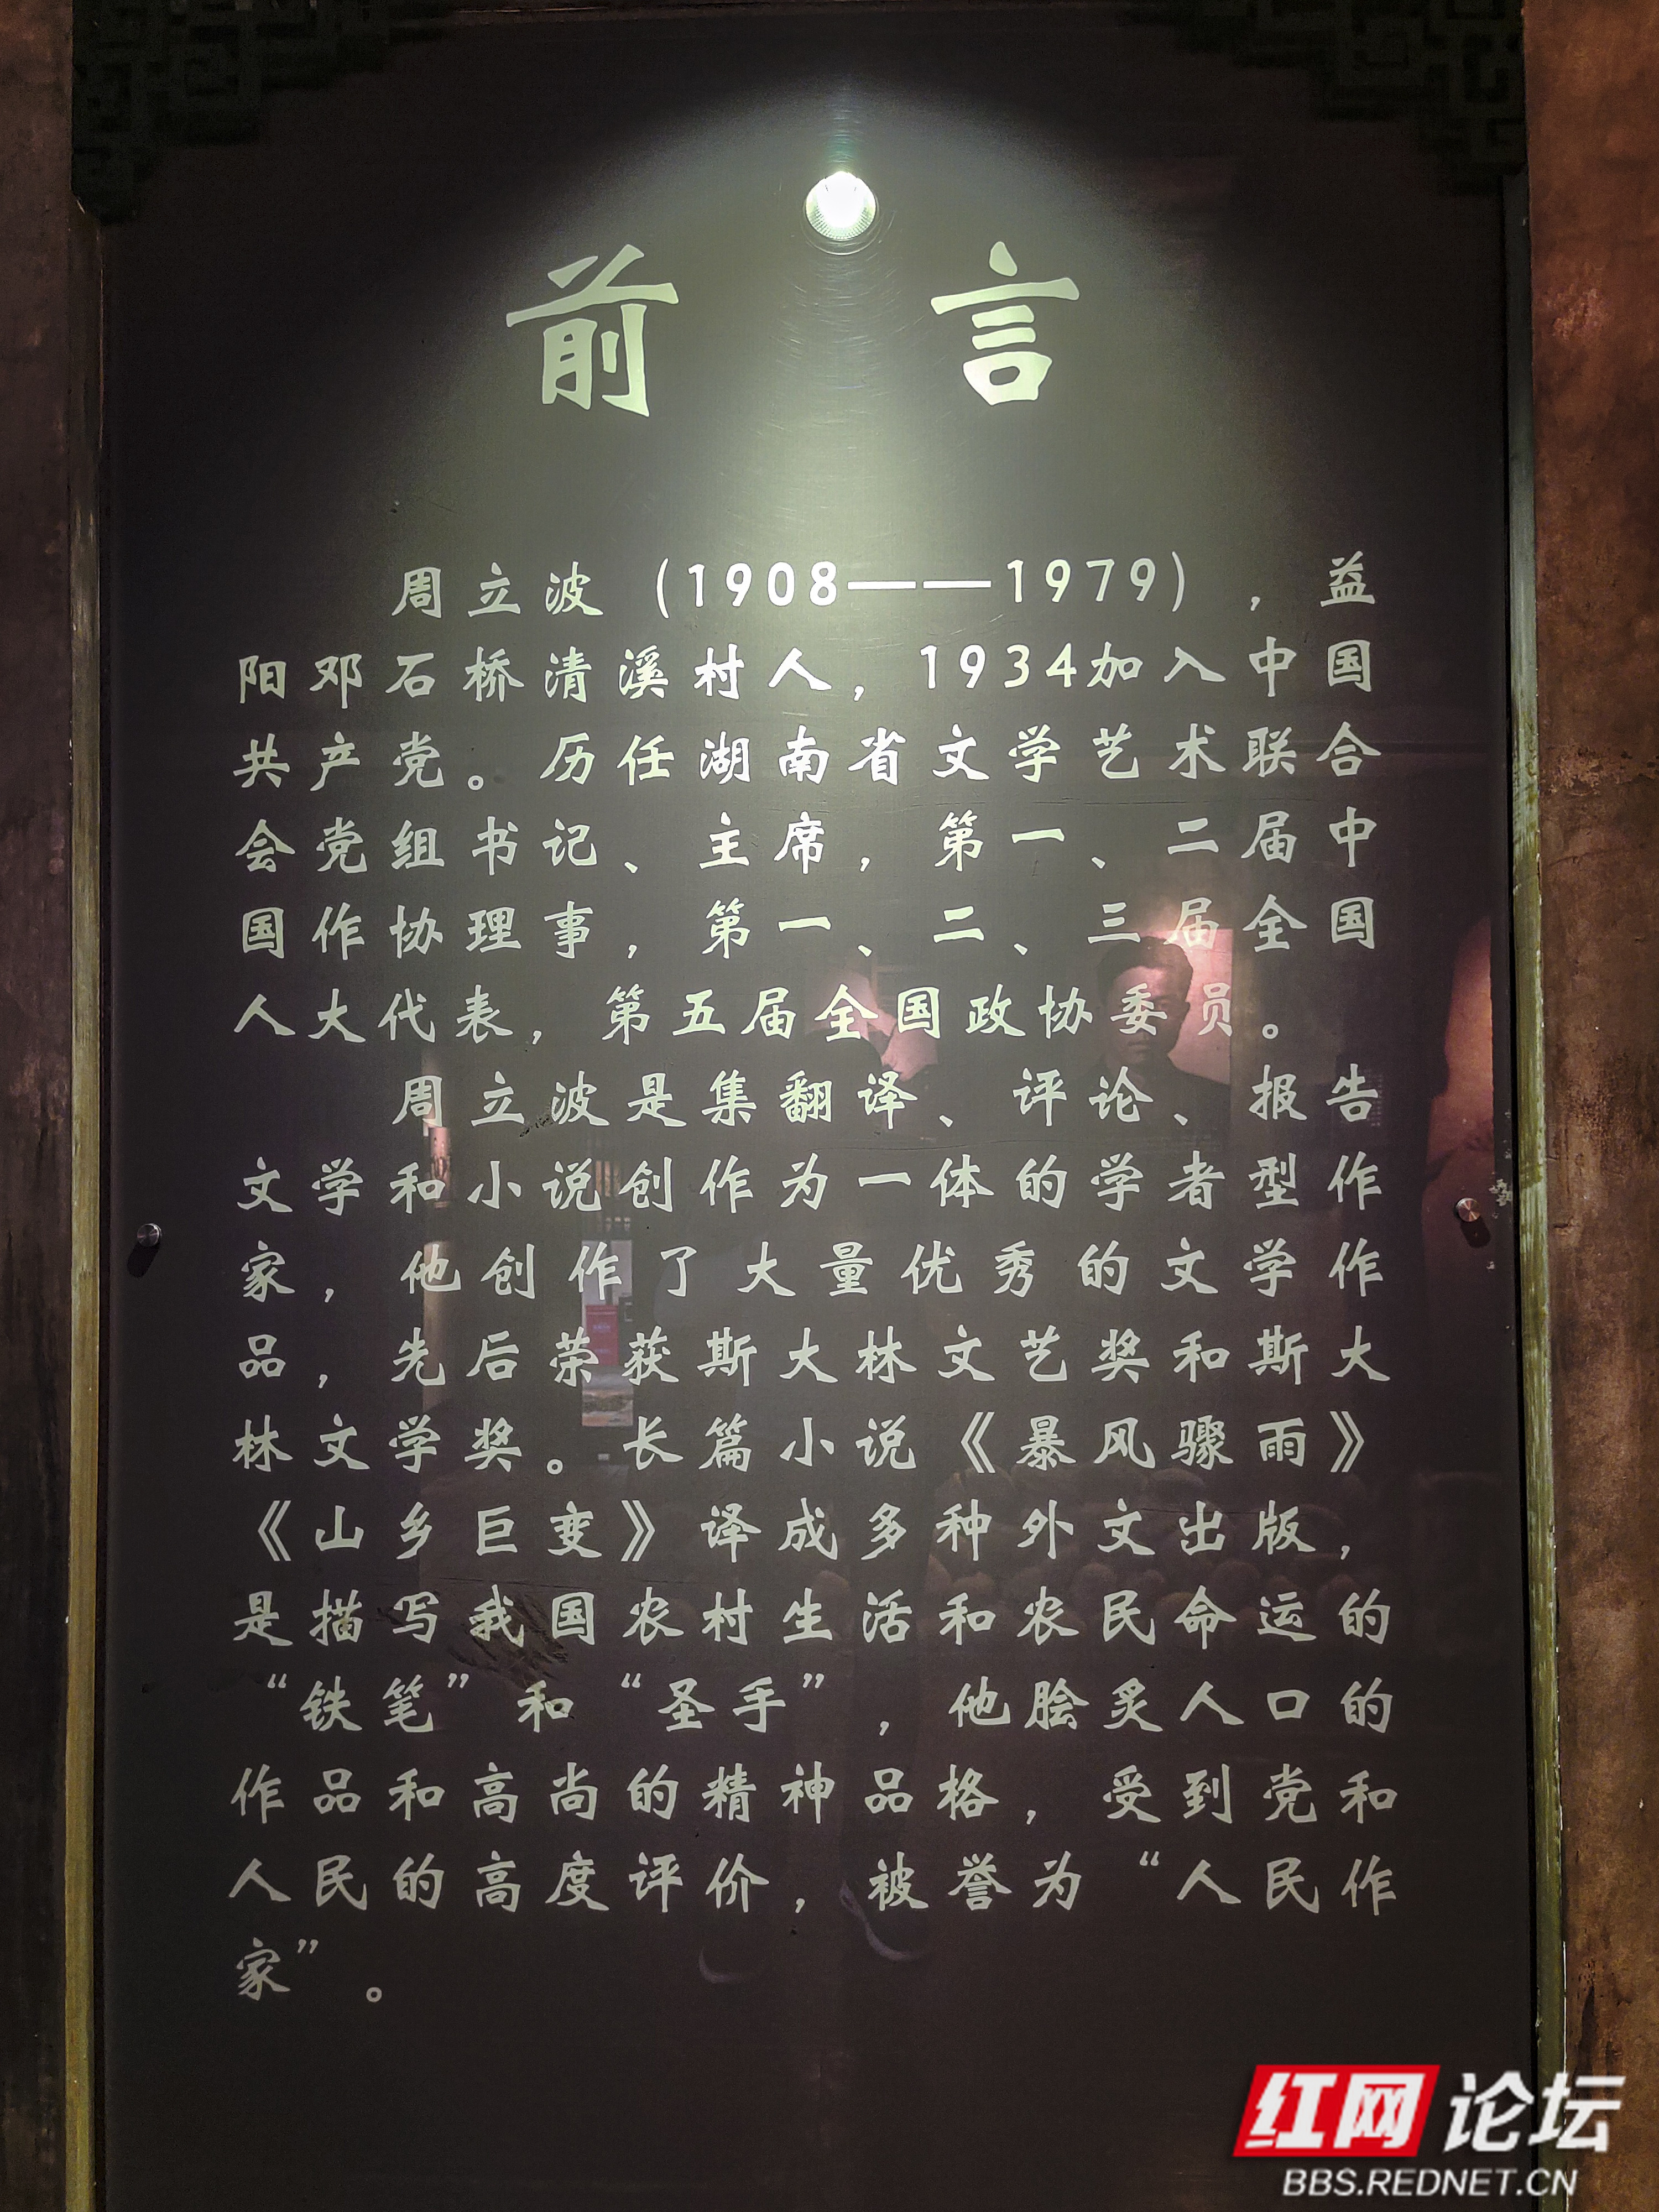 前言
周立波（1908——1979），益
阳邓石桥清溪村人，1934加入中国
共产党。历任湖南省文学艺术联合
会党组书记、主席，第一、二届中
国作协理事，第一、二、三届全国
人大代表，第五届全国政协委员。
周立波是集翻译、评论、报告
文学和小说创作为一体的学者型作
家，他创作了大量优秀的文学作
品，先后荣获斯大林文艺奖和斯大
林文学奖。长篇小说《暴风骤雨》
《山乡巨变》译成多种外文出版，
是描写我国农村生活和农民命运的
“铁笔”和“圣手”，他脍炙人口的
作品和高尚的精神品格，受到党和
人民的高度评价，被誉为“人民作
家”。
红网论坛
BBS.REDNET.CN